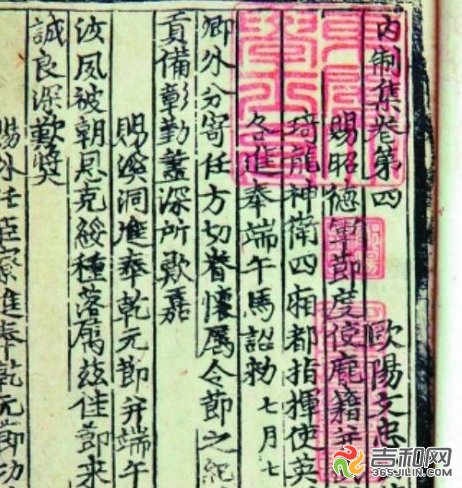 内制集卷第四 歐陽文忠
賜昭德軍節度使龐籍并
琦龍神衛四廂都指揮使英
各進奉端午馬詔勅 七月七
卿外分寄任方切眷懷屬令節之紀
貢備彰勤藎深所歎嘉
賜溪洞進奉乾元節并端午
汝夙被朝恩克綏種落屬茲佳節來
誠良深歎奬
賜外任臣寮進奉乾元節功
吉和网
365JILIN.COM